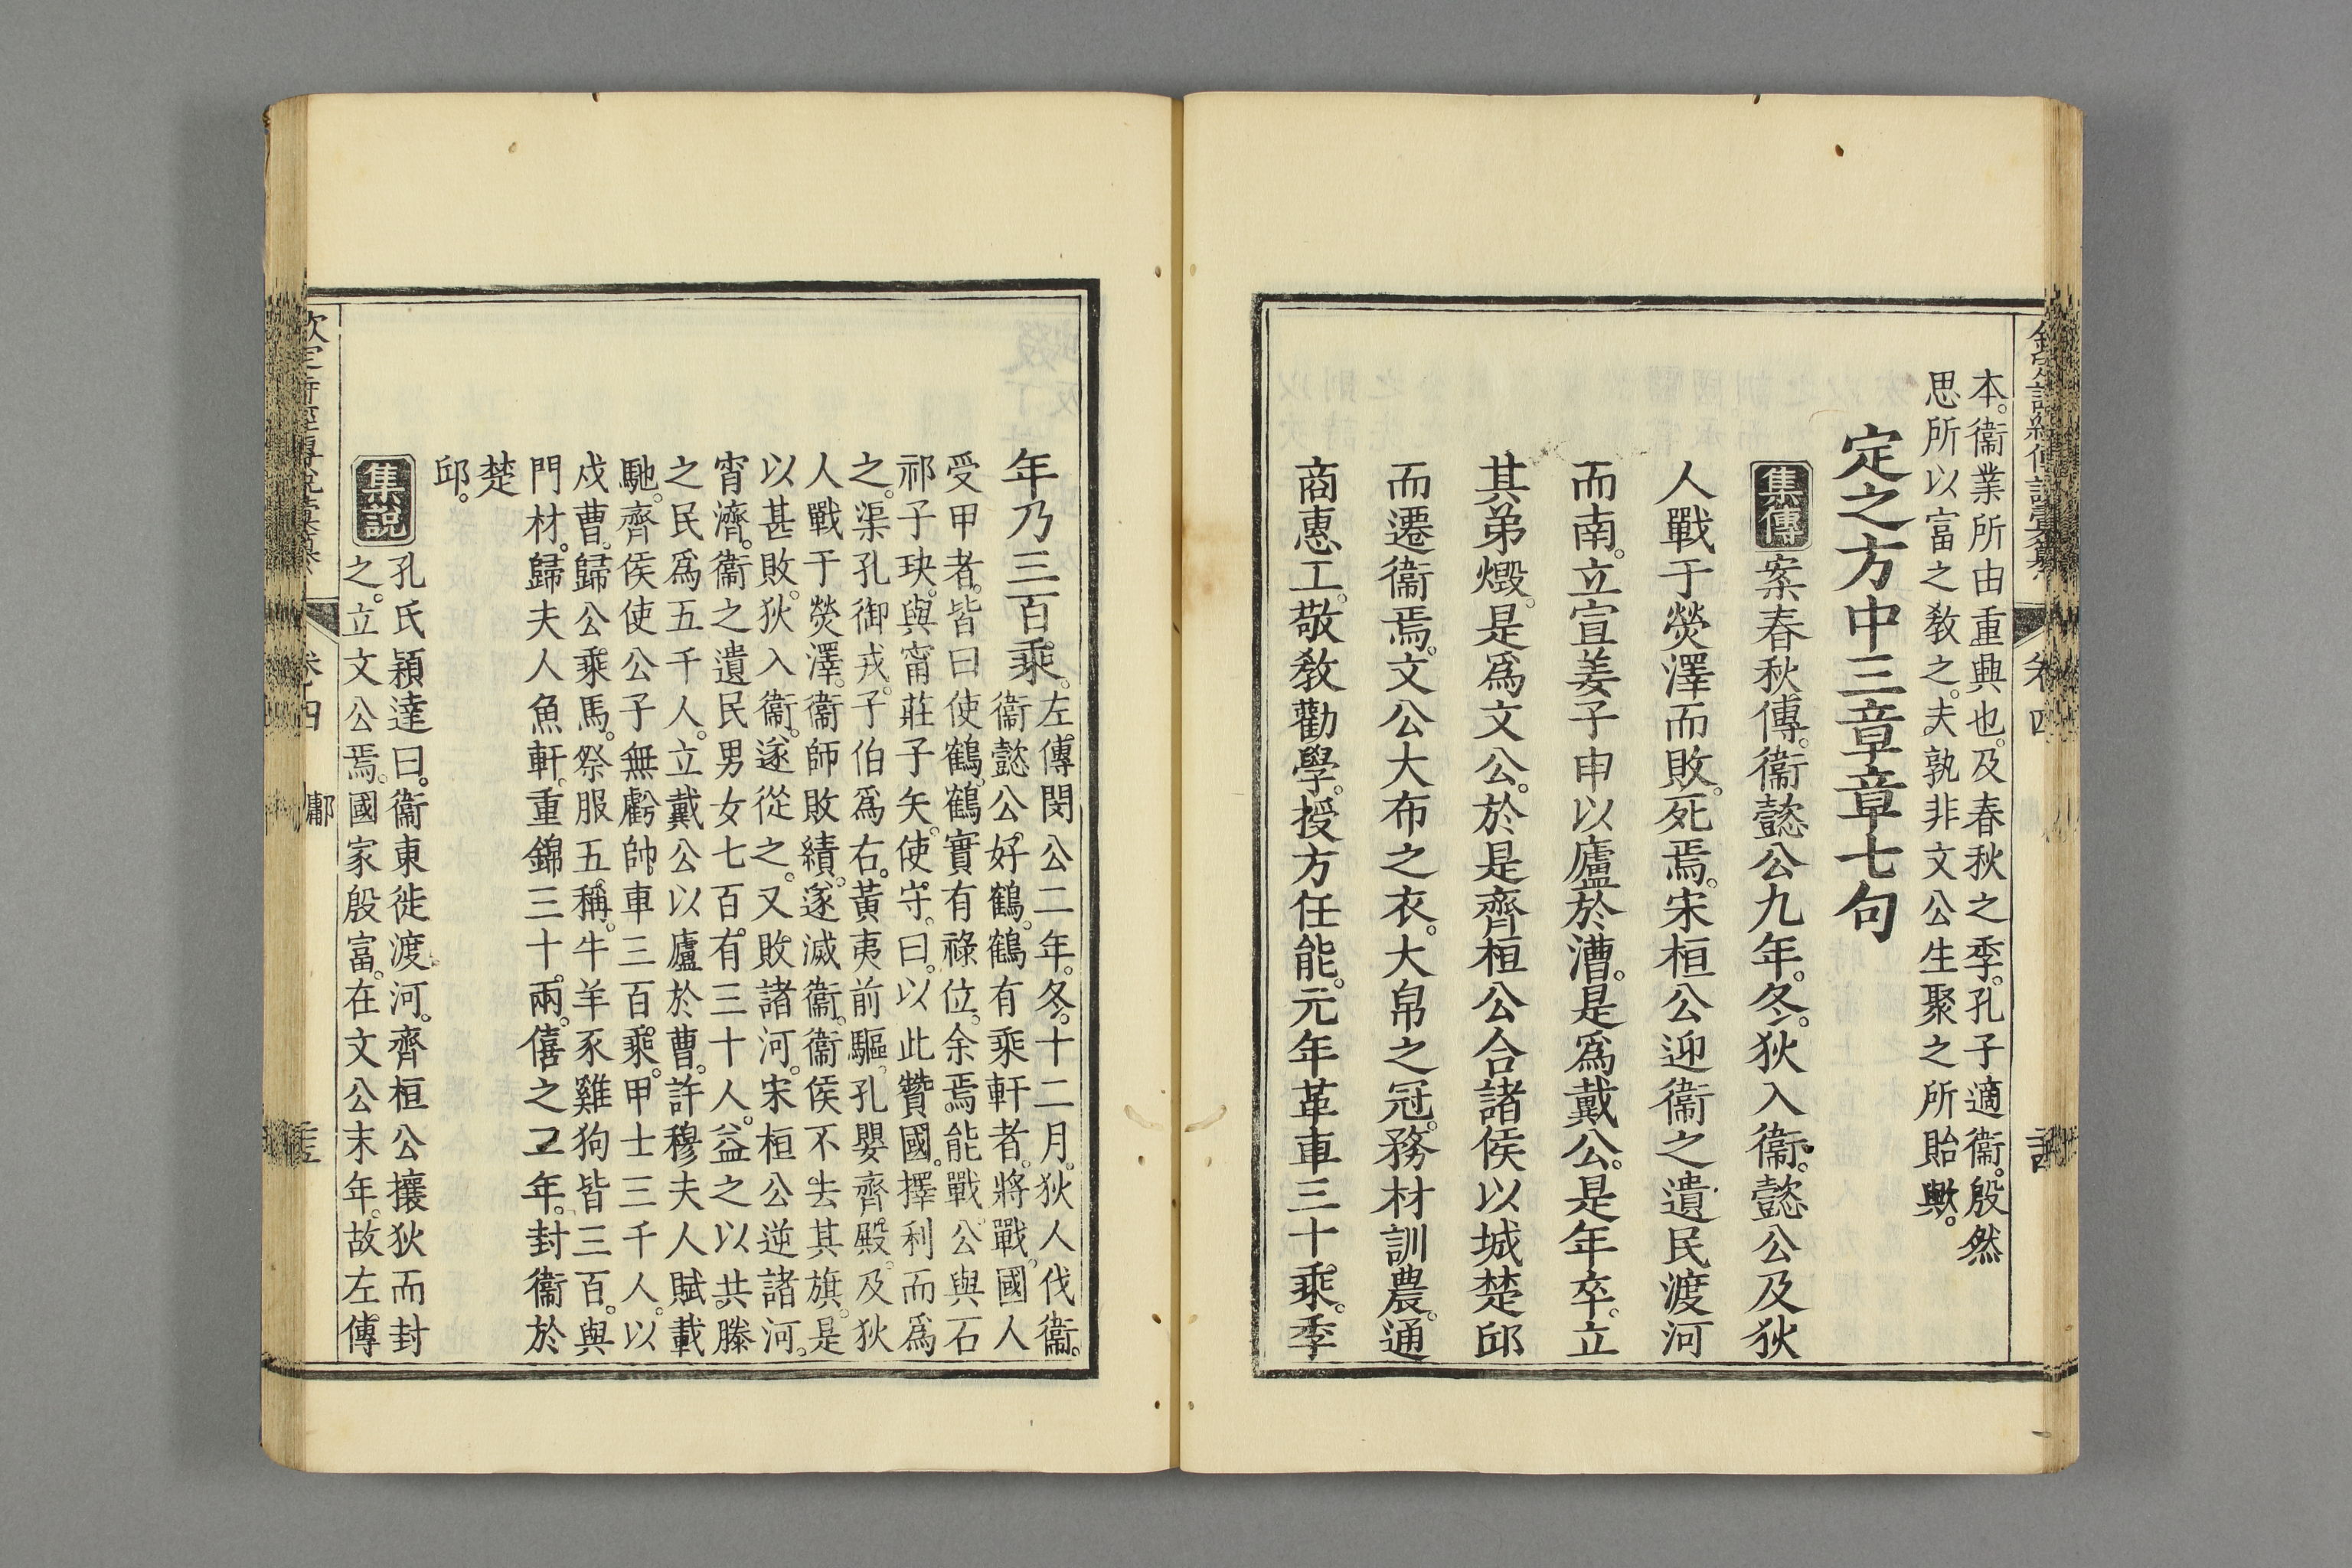 本。衞業所由重興也。及春秋之季。孔子適衞。殷然
思所以富之敎之。夫孰非文公生聚之所貽歟。
定之方中三章章七句
集傳
案春秋傳。衞懿公九年。冬。狄入衞。懿公及狄
人戰于熒澤而敗。死焉。宋桓公迎衞之遺民渡河
而南。立宣姜子申以廬於漕。是爲戴公。是年卒。立
其弟燬。是爲文公。於是齊桓公合諸侯以城楚邱
而遷衞焉。文公大布之衣。大帛之冠。務材訓農。通
商惠工。敬敎勸學。授方任能。元年革車三十乘。季
年乃三百乘。
左傳閔公二年。冬。十二月。狄人伐衞。
衞懿公。好鶴。鶴有乘軒者。將戰。國人
受甲者。皆曰使鶴。鶴實有祿位。余焉能戰。公與石
祁子玦。與甯莊子矢。使守。曰。以此贊國。擇利而爲
之。渠孔御戎。子伯爲右。黃夷前驅。孔嬰齊殿。及狄
人戰于熒澤。衞師敗績。遂滅衞。衞侯不去其旗。是
以甚敗。狄入衞。遂從之。又敗諸河。宋桓公逆諸河。
宵濟。衞之遺民男女七百。有三十人。益之以共滕
之民爲五千人。立戴公以廬於曹。許穆夫人賦載
馳。齊侯使公子無虧帥。車三百乘。甲士三千人。以
戍曹。歸公乘馬。祭服五稱。牛羊豕雞狗皆三百。與
門材。歸夫人魚軒。重錦三十。兩。僖之二年。封衞於
楚
邱。
集說
孔氏穎達曰。衞東徙渡河。齊桓公攘狄而封
之。立文公焉。國家殷富。在文公末年。故左傳
卷四
鄘